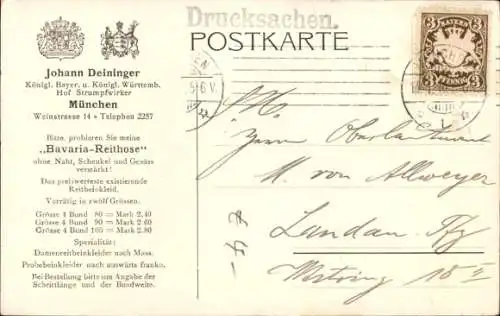 Drucksachen.
POSTKARTE
Johann Deininger
Königl. Bayer. u. Königl. Württemb.
Hof Strumpfwirker
München
Weinstrasse 14 • Telephon 2257
Bitte, probieren Sie meine
„Bavaria-Reithose"
ohne Naht, Schenkel und Gesäss
verstärkt!
Das preiswerteste existierende
Reitbeinkleid.
Vorrätig in zwölf Grössen.
Grösse 4 Bund 80 = Mark 2.40
Grösse 4 Bund 90 = Mark 2.60
Grösse 4 Bund 100 = Mark 2.80
Spezialität:
Damenreitbeinkleider nach Mass.
Probebeinkleider nach auswärts franko.
Bei Bestellung bitte um Angabe der
Schrittlänge und der Bundweite.
3 BAYERN 3
3 PFENNIG 3
5-6 V.
Herrn Oberleutnant
M. von Allweyer
Landau Pfg
15